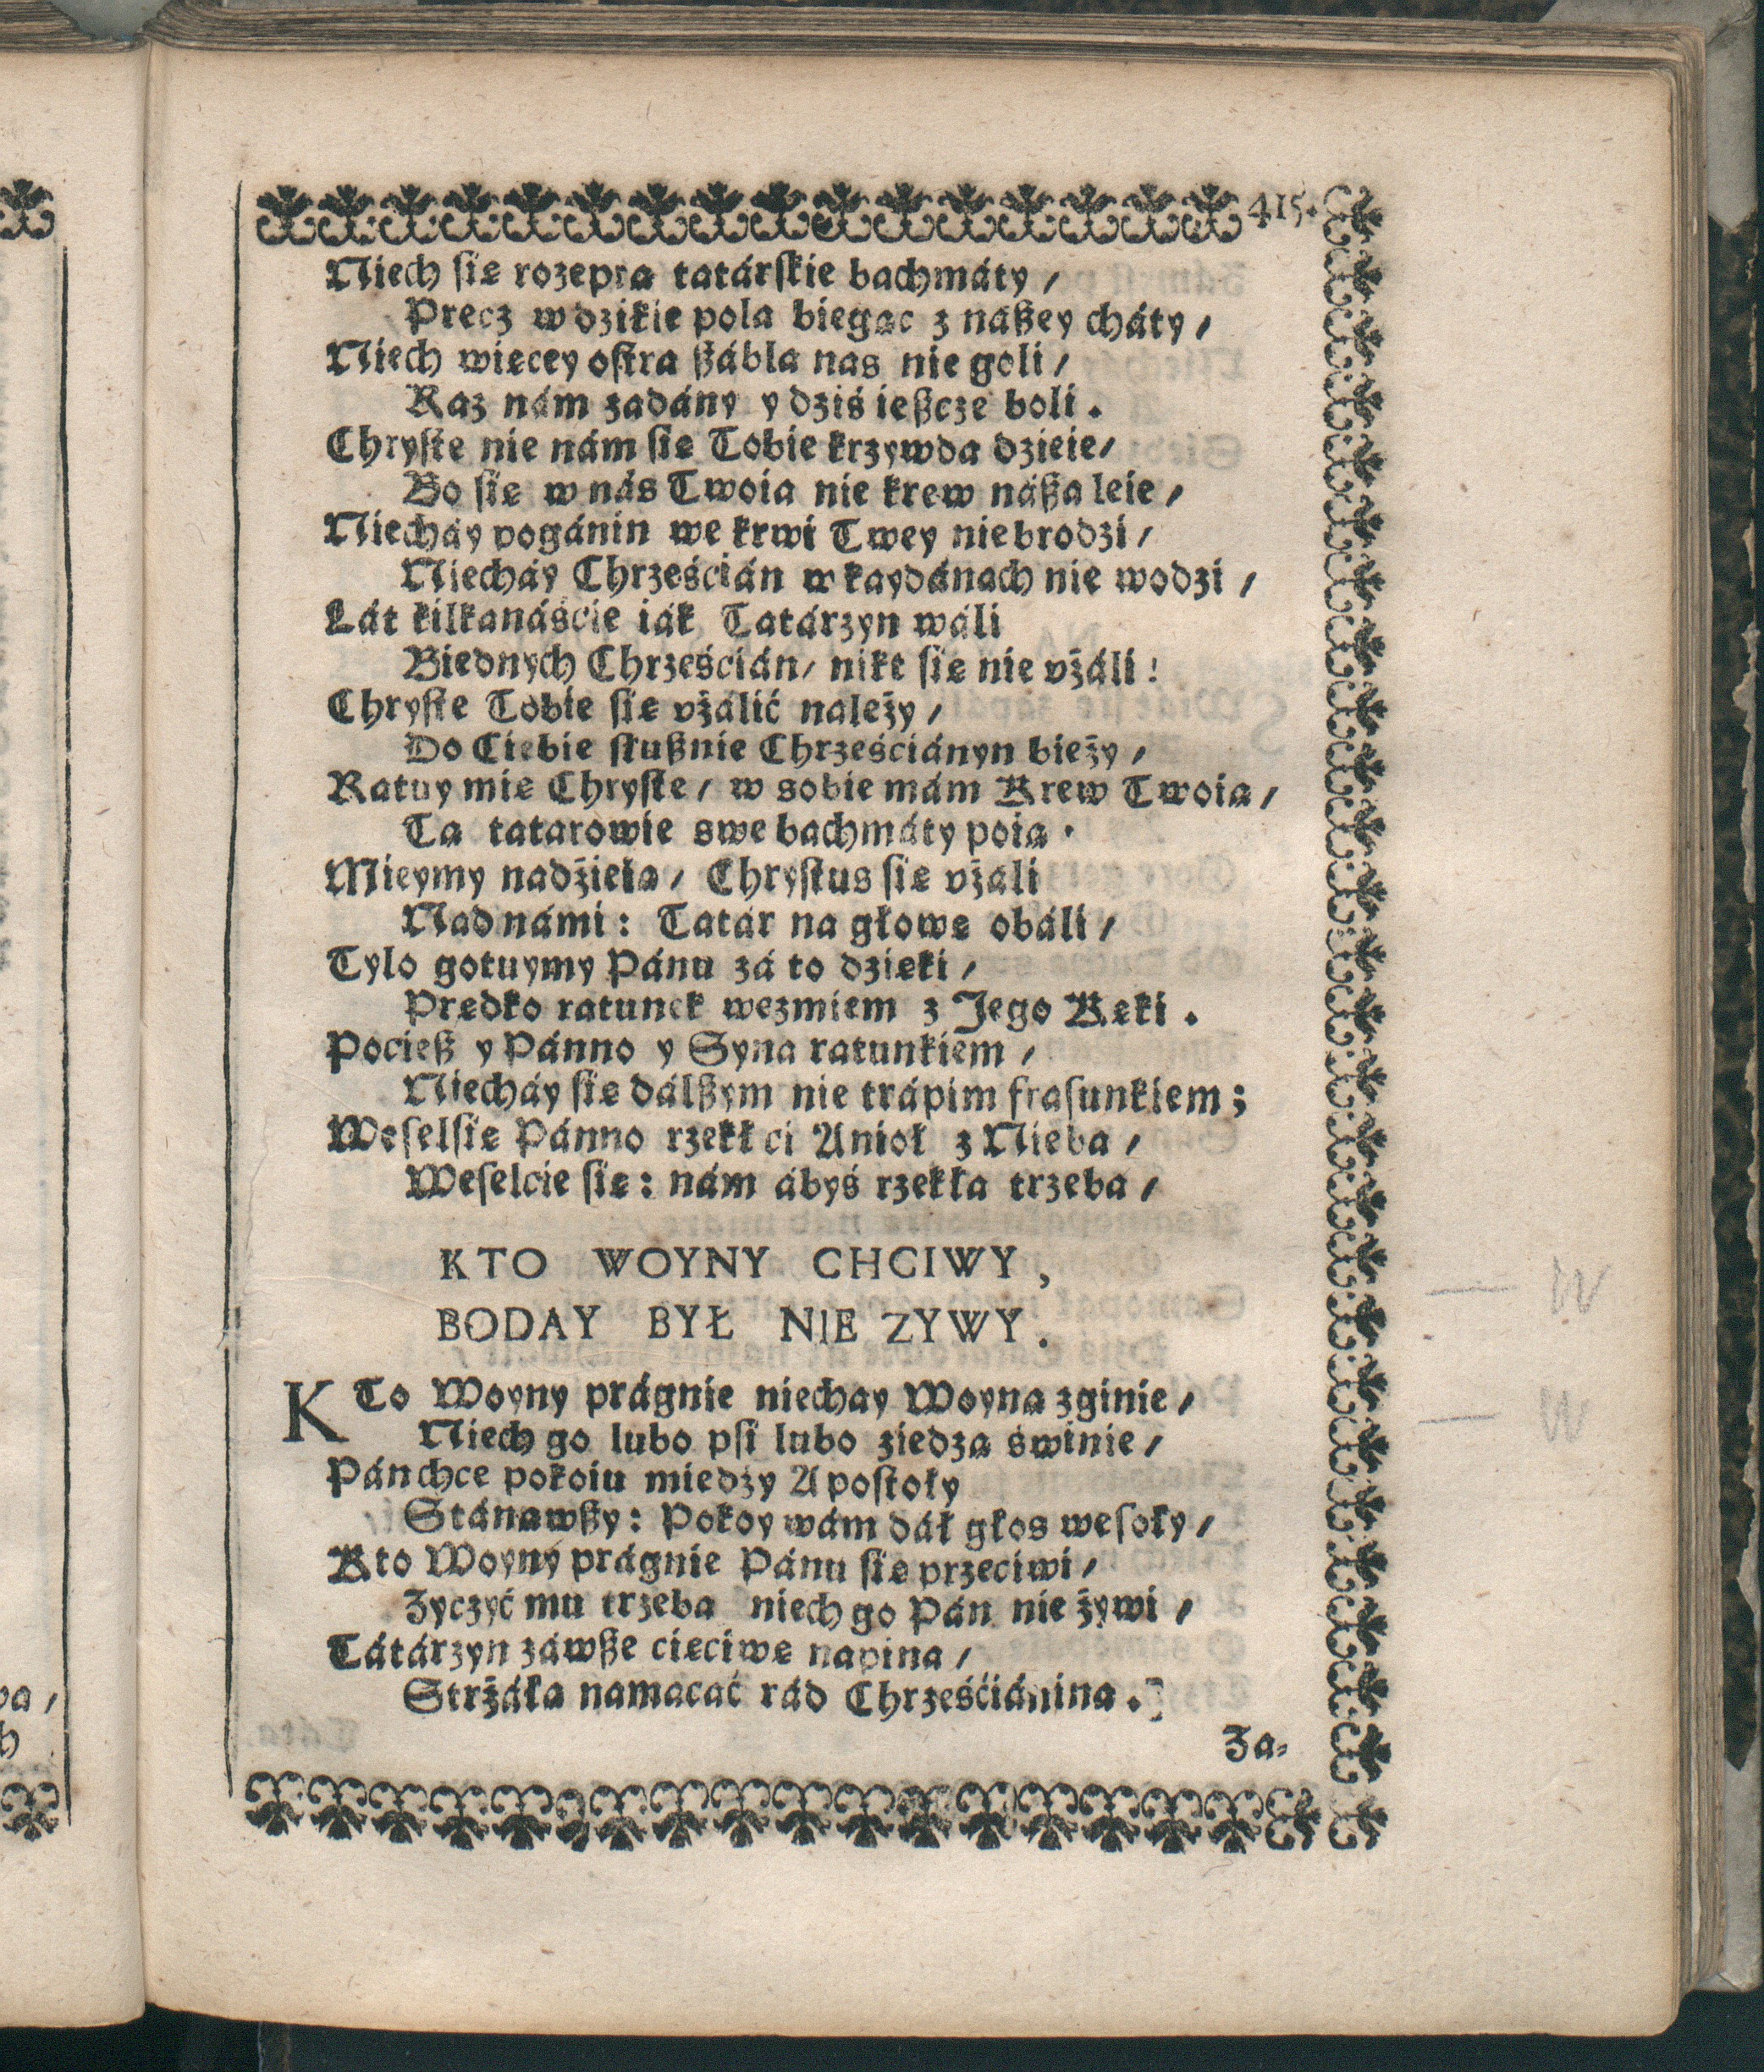 415.
Niech się rozeprą tatárskie bachmáty /
Precz w dzikie pola biegąc z nászey cháty /
Niech więcey ostra szábla nas nie goli /
Raz nám zadány y dziś ieszcze boli .
Chryste nie nám się Tobie krzywda dzieie /
Bo się w nás Twoia nie krew násza leie /
Niecháy pogánin we krwi Twey nie brodzi /
Niecháy Chrześcián w kaydánach nie wodzi /
Lát kilkanáście iák Tatárzyn wáli
Biednych Chrześcián / nikt się nie vżáli !
Chryste Tobie się vżálić należy /
Do Ciebie słusznie Chrześciányn bieży /
Ratuy mię Chryste / w sobie mám Krew Twoią /
Tą tatarowie swe bachmáty poią .
Mieymy nadżieią / Chrystus się vżáli
Nad námi : Tatár na głowę obáli /
Tylo gotuymy Pánu zá to dzięki /
Prędko ratunek wezmiem z Jego Ręki .
Pociesz y Pánno y Syna ratunkiem /
Niecháy się dálszym nie trápim frasunkiem ;
Wesel się Pánno rzekł ci Anioł z Nieba /
Weselcie się : nám ábyś rzekła trzeba /
KTO WOYNY CHCIWY ,
BODAY BYŁ NIE ZYWY .
KTo Woyny prágnie niechay Woyna zginie /
Niech go lubo psi lubo ziedzą świnie /
Pán chce pokoiu miedzy Apostoły
Stánąwszy : Pokoy wám dáł głos wesoły /
Kto Woyny prágnie Pánu się przeciwi /
Zyczyć mu trzeba niech go Pán nie żywi /
Tátárzyn záwsze cięciwę napina /
Strżáłą namacać rád Chrześćiánina .
Za-
W
W